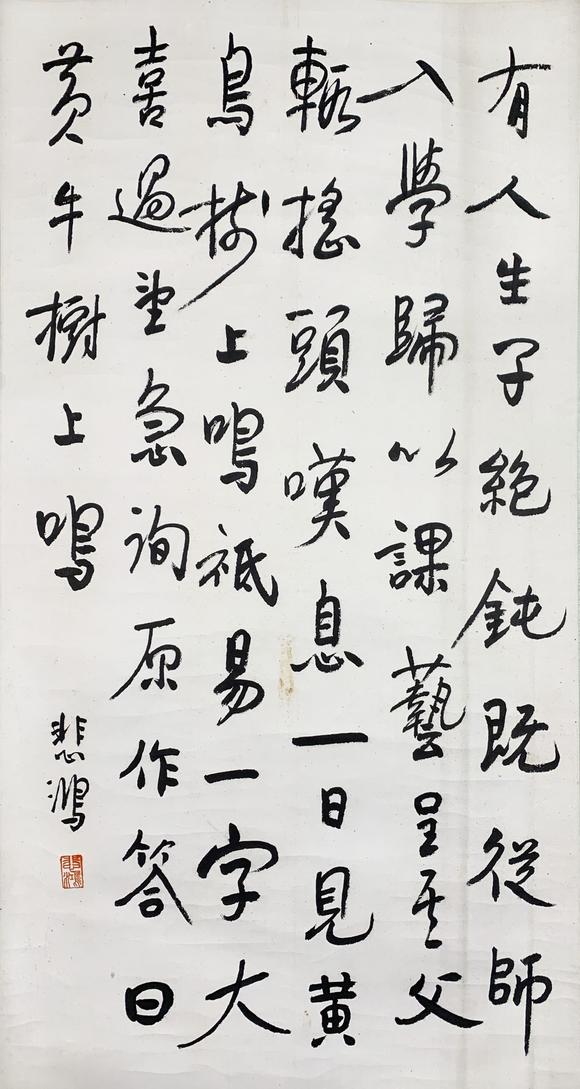 有人生子絕鈍既從師
入學歸以課藝呈其父
輒搖頭嘆息一日見黃
鳥樹上鳴祗易一字大
喜過望急詢原作答曰
黃牛樹上鳴
悲鴻